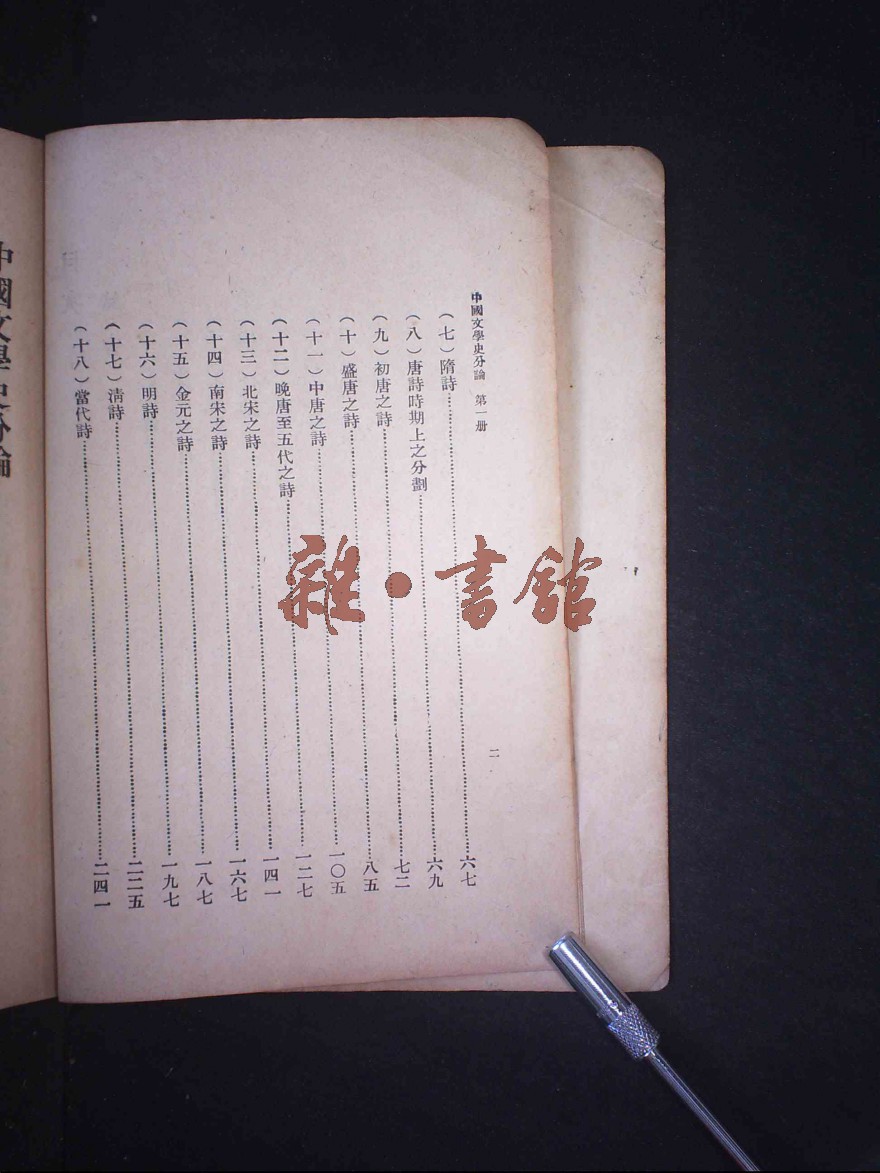 中國文學史分論　第一册
二
（七）隋詩……六七
（八）唐詩時期上之分劃……六九
（九）初唐之詩……七二
（十）盛唐之詩……八五
（十一）中唐之詩……一〇五
（十二）晚唐至五代之詩……一二七
（十三）北宋之詩……一四一
（十四）南宋之詩……一六七
（十五）金元之詩……一八七
（十六）明詩……一九七
（十七）淸詩……二二五
（十八）當代詩……二四一
中國文學史分論
雜·書館